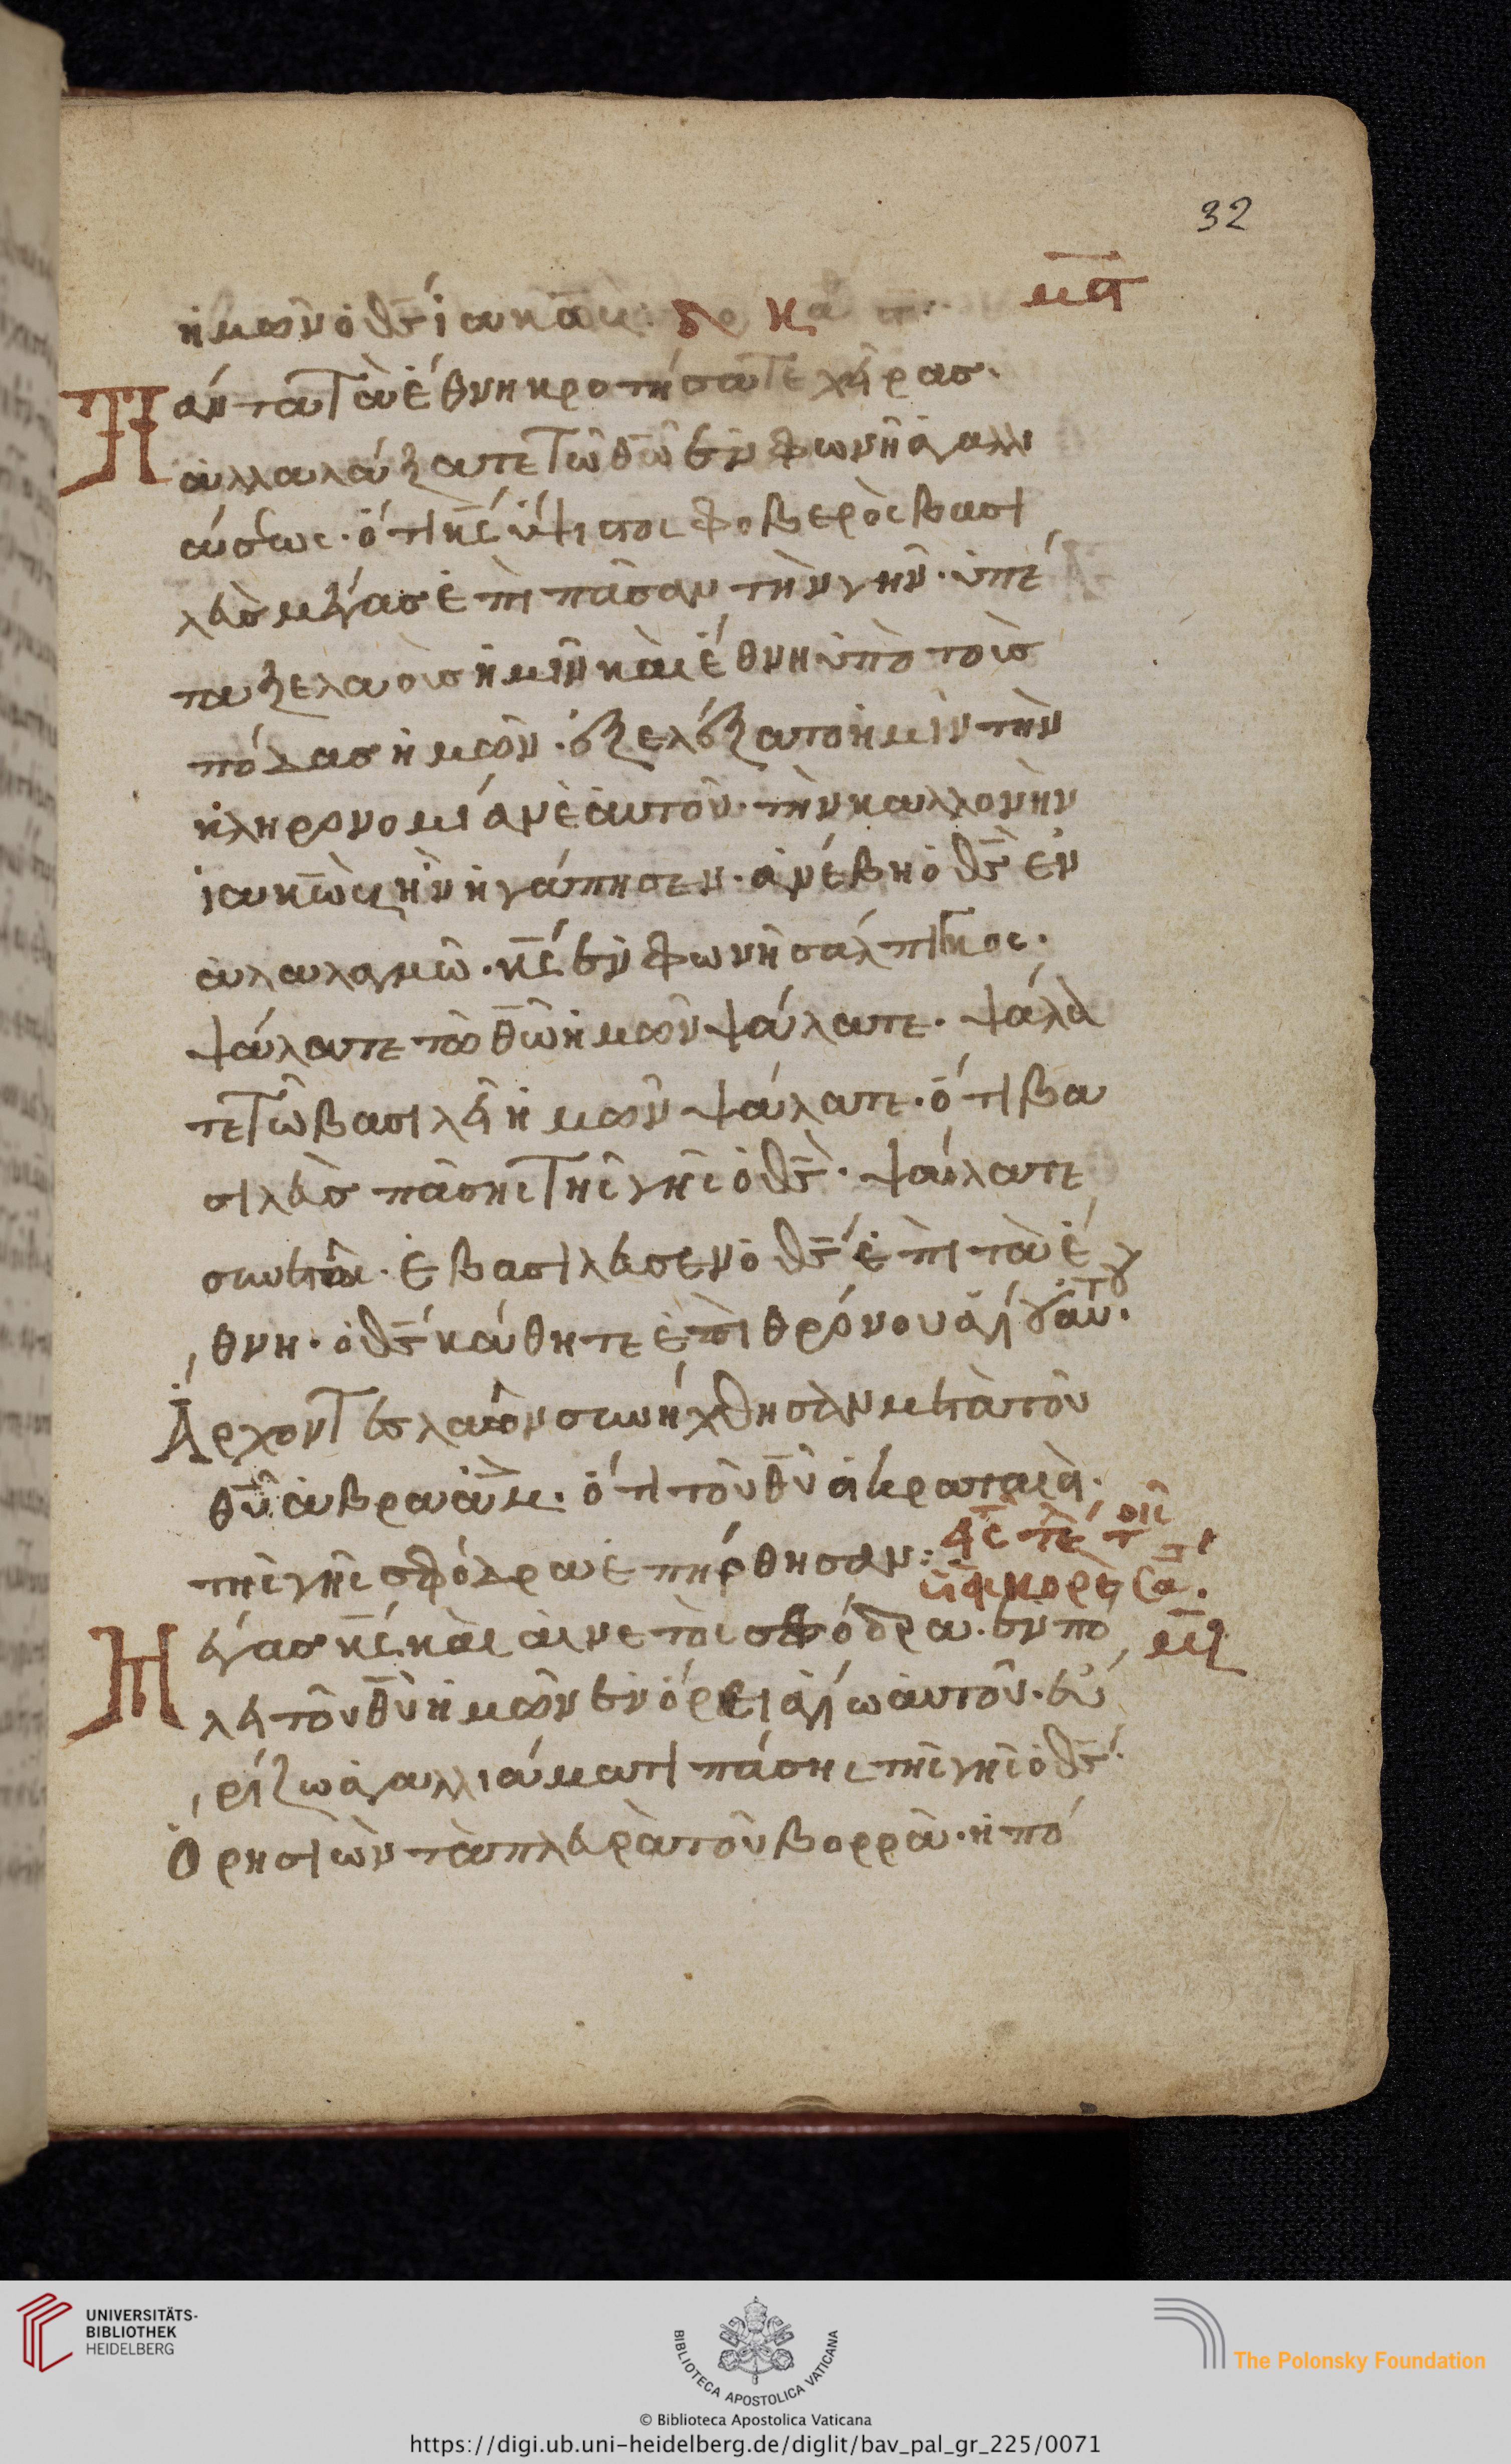 32
ἡμῶν ὁ θς ἰακώβ. μς
Πάντα τὰ ἔθνη κροτήσατε χεῖρας.
ἀλλαλάξατε τῶ θῶ ἐν φωνῆ ἀγαλλι
άσεως. ὅτι κς ὕψιστος φοβερὸς βασι
λεὺς μέγας ἐπὶ πᾶσαν τὴν γῆν. ὑπέ
ταξε λαοὺς ἡμῖν καὶ ἔθνη ὑπὸ τοὺς
πόδας ἡμῶν. ἐξελέξατο ἡμῖν τὴν
κληρονομίαν ἑαυτοῦ. τὴν καλλονὴν
ἰακὼβ ἣν ἠγάπησεν. ἀνέβη ὁ θς ἐν
ἀλαλαγμῶ. κς ἐν φωνῆ σάλπιγγος.
ψάλατε τῶ θῶ ἡμῶν ψάλατε. ψάλα
τε τῶ βασιλεῖ ἡμῶν ψάλατε. ὅτι βα
σιλεὺς πάσης τῆς γῆς ὁ θς. ψάλατε
συνετῶς. ἐβασίλευσεν ὁ θς ἐπὶ τὰ ἔ
θνη. ὁ θς κάθητε ἐπὶ θρόνου ἁγίου αὐτοῦ.
Ἄρχοντες λαῶν συνήχθησαν μετὰ τοῦ
θῦ ἀβραάμ. ὅτι τοῦ θῦ οἱ κραταιοὶ
τῆς γῆς σφόδρα ἐπήρθησαν:
Μέγας κς καὶ αἰνετὸς σφόδρα. ἐν πό μζ
λει τοῦ θῦ ἡμῶν ἐν ὄρει ἁγίω αὐτοῦ. εὐ
ρίζω ἀγαλλιάματι πάσης τῆς γῆς ὁ θς.
Ὄρη σιὼν τὰ πλευρὰ τοῦ βορρᾶ. ἡ πό
UNIVERSITÄTS-
BIBLIOTHEK
HEIDELBERG
BIBLIOTECA APOSTOLICA VATICANA
The Polonsky Foundation
© Biblioteca Apostolica Vaticana
https://digi.ub.uni-heidelberg.de/diglit/bav_pal_gr_225/0071